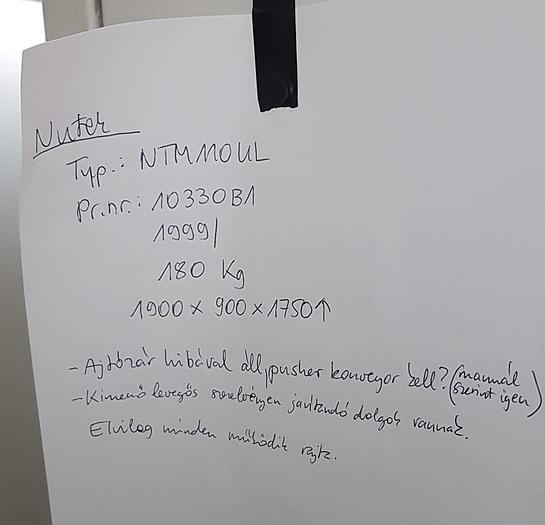 Nutek
Typ.: NTM110UL
Pr.nr.: 10330B1
1999/
180 Kg
1900 x 900 x 1750↑
- Ajtózár hibával áll, pusher konveyor kell? (manuál szerint igen)
- Kimenő levegős szerelvényen javítandó dolgok vannak.
Elvileg minden működik rajta.